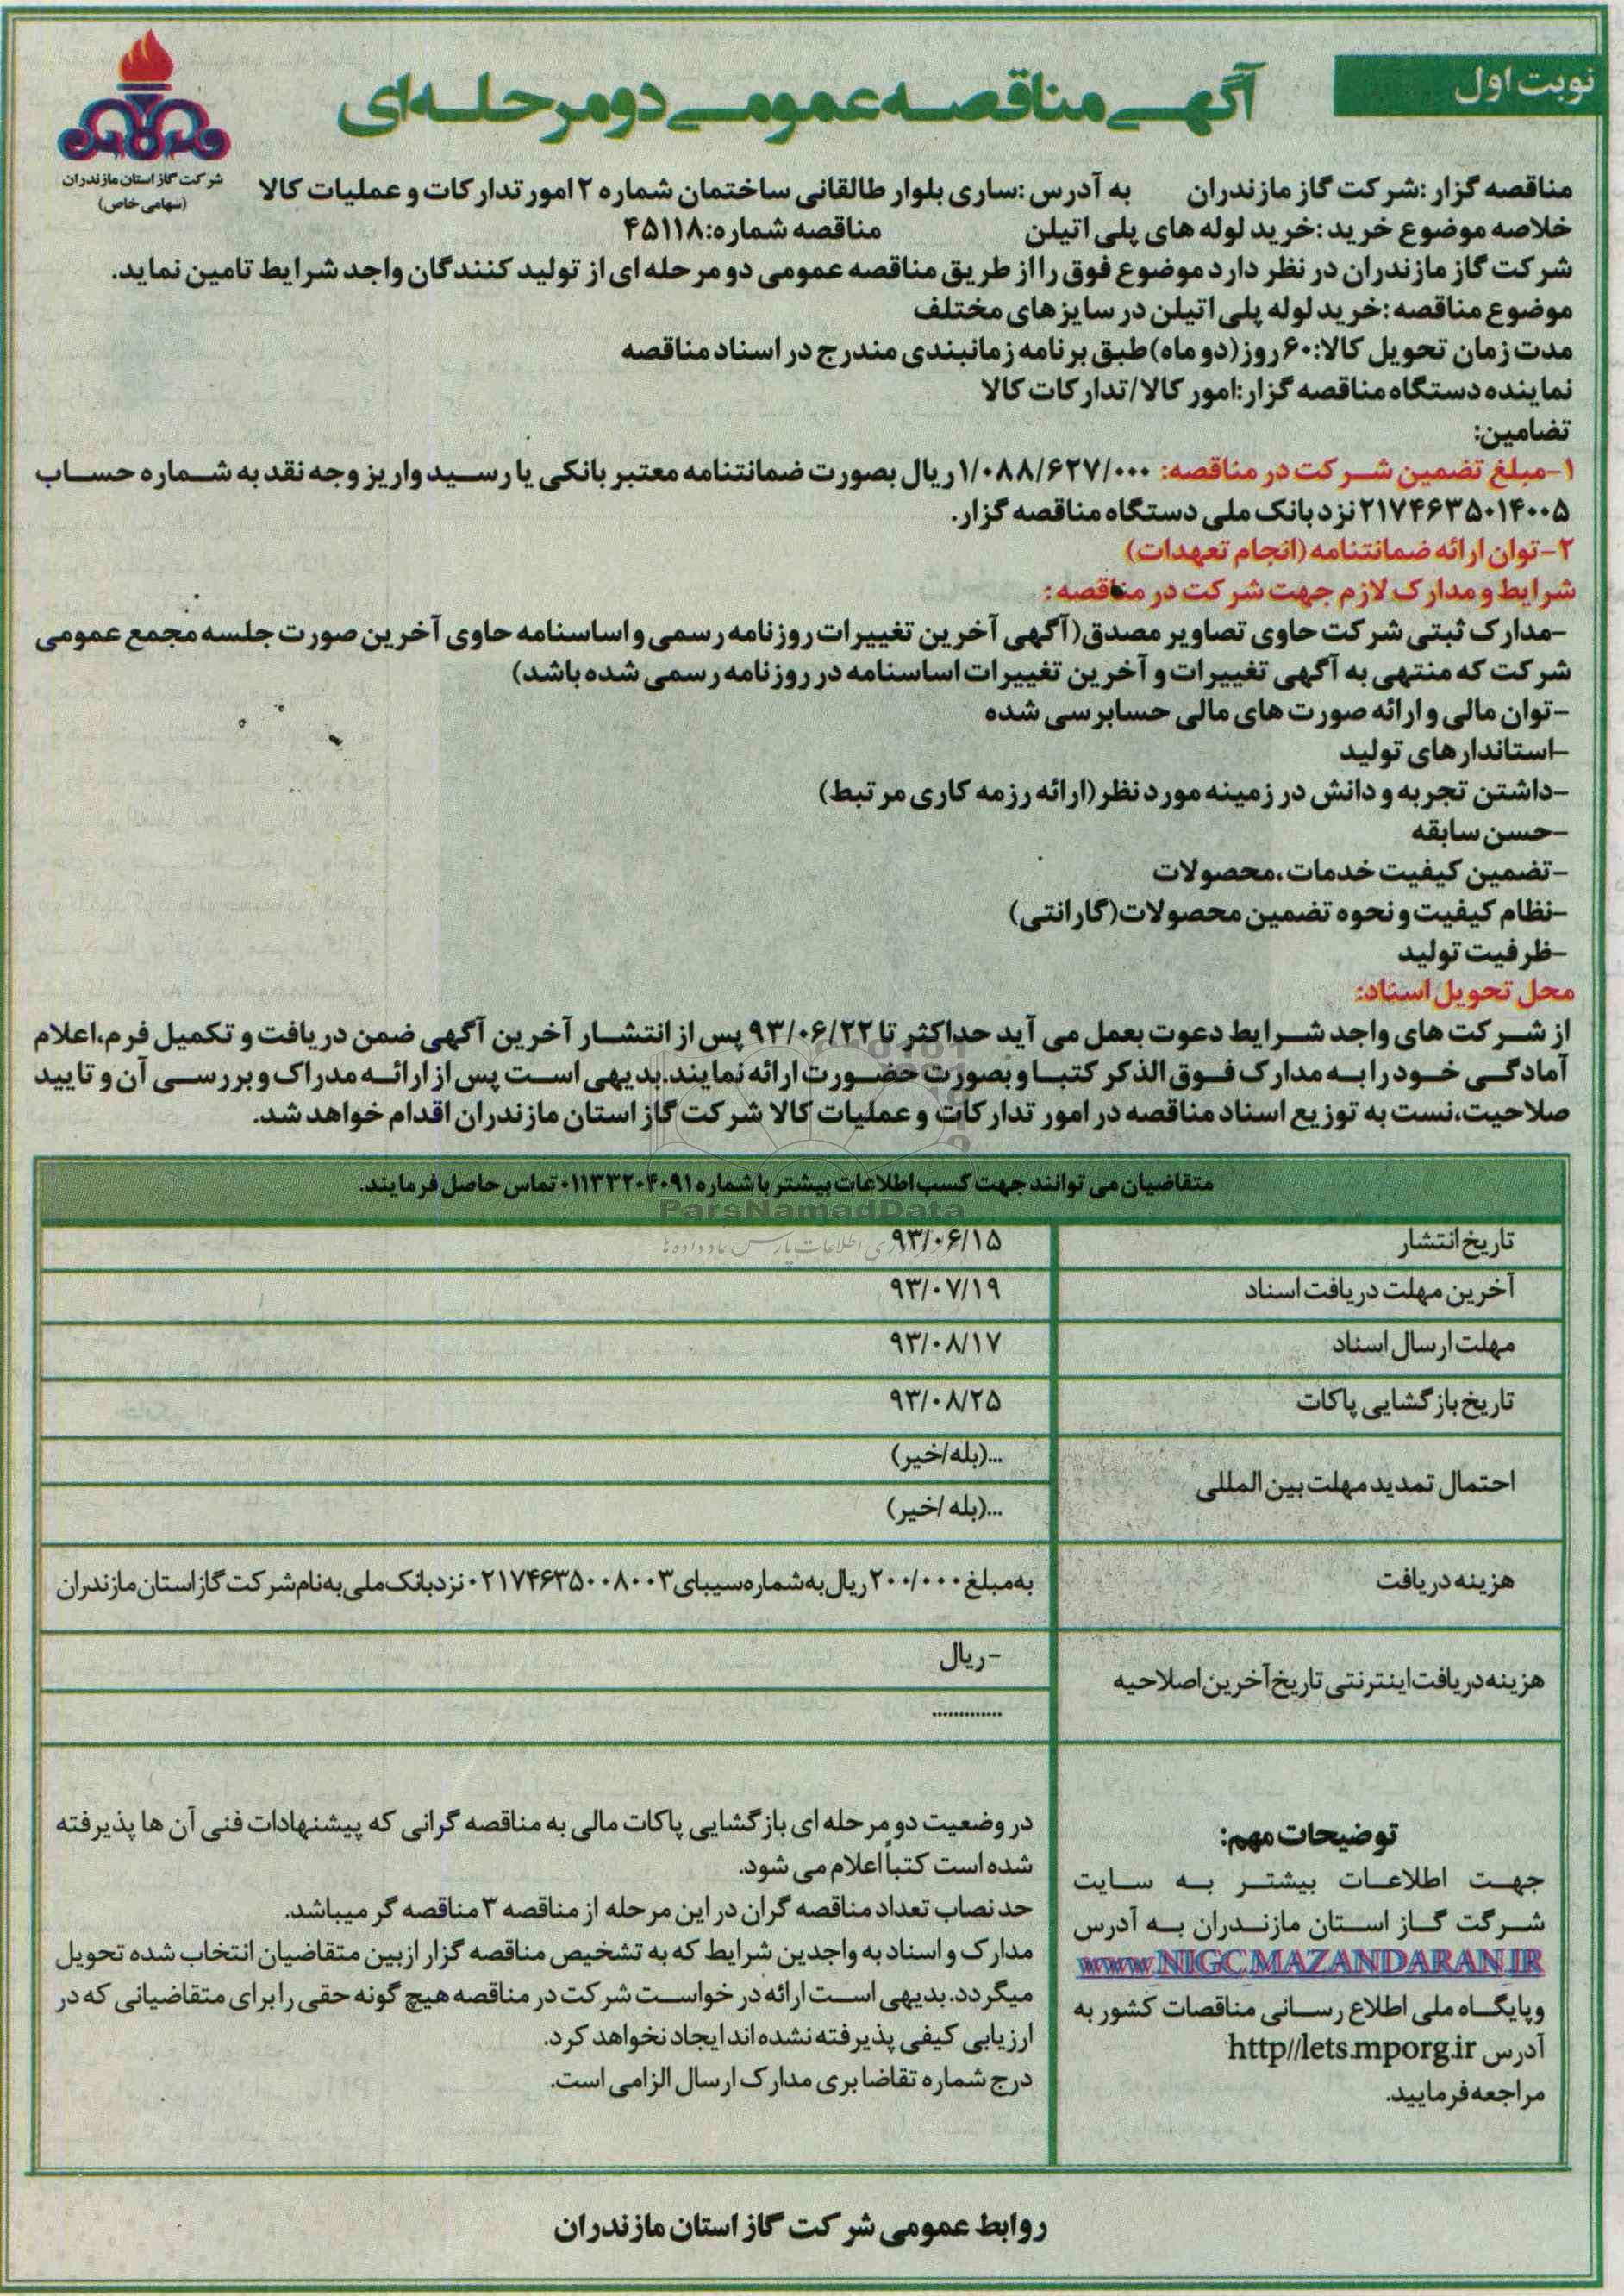 نوبت اول
آگهی مناقصه عمومی دو مرحله ای
شرکت گاز استان مازندران
(سهامی خاص)
مناقصه گزار :شرکت گاز مازندران به آدرس :ساری بلوار طالقانی ساختمان شماره ۲ امور تدارکات و عملیات کالا
خلاصه موضوع خرید :خرید لوله های پلی اتیلن مناقصه شماره:۴۵۱۱۸
شرکت گاز مازندران در نظر دارد موضوع فوق را از طریق مناقصه عمومی دو مرحله ای از تولید کنندگان واجد شرایط تامین نماید.
موضوع مناقصه :خرید لوله پلی اتیلن در سایزهای مختلف
مدت زمان تحویل کالا:۶۰ روز(دو ماه)طبق برنامه زمانبندی مندرج در اسناد مناقصه
نماینده دستگاه مناقصه گزار:امور کالا /تدارکات کالا
تضامین:
۱-مبلغ تضمین شرکت در مناقصه: ۱/۰۸۸/۶۲۷/۰۰۰ ریال بصورت ضمانتنامه معتبر بانکی یا رسید واریز وجه نقد به شماره حساب
۲۱۷۴۶۳۵۰۱۴۰۰۵ نزد بانک ملی دستگاه مناقصه گزار.
۲-توان ارائه ضمانتنامه (انجام تعهدات)
شرایط و مدارک لازم جهت شرکت در مناقصه :
-مدارک ثبتی شرکت حاوی تصاویر مصدق(آگهی آخرین تغییرات روزنامه رسمی و اساسنامه حاوی آخرین صورت جلسه مجمع عمومی
شرکت که منتهی به آگهی تغییرات و آخرین تغییرات اساسنامه در روزنامه رسمی شده باشد)
-توان مالی و ارائه صورت های مالی حسابرسی شده
-استاندارهای تولید
-داشتن تجربه و دانش در زمینه مورد نظر(ارائه رزمه کاری مرتبط)
-حسن سابقه
-تضمین کیفیت خدمات،محصولات
-نظام کیفیت و نحوه تضمین محصولات(گارانتی)
-ظرفیت تولید
محل تحویل اسناد:
از شرکت های واجد شرایط دعوت بعمل می آید حداکثر تا ۹۳/۰۶/۲۲ پس از انتشار آخرین آگهی ضمن دریافت و تکمیل فرم،اعلام
آمادگی خود را به مدارک فوق الذکر کتبا و بصورت حضورت ارائه نمایند.بدیهی است پس از ارائه مدراک و بررسی آن و تایید
صلاحیت،نست به توزیع اسناد مناقصه در امور تدارکات و عملیات کالا شرکت گاز استان مازندران اقدام خواهد شد.
متقاضیان می توانند جهت کسب اطلاعات بیشتر با شماره ۰۱۱۳۳۲۰۴۰۹۱ تماس حاصل فرمایند.
ParsNamadData
تاریخ انتشار ۹۳/۰۶/۱۵
آخرین مهلت دریافت اسناد ۹۳/۰۷/۱۹
مهلت ارسال اسناد ۹۳/۰۸/۱۷
تاریخ بازگشایی پاکات ۹۳/۰۸/۲۵
احتمال تمدید مهلت بین المللی ...(بله/خیر)
...(بله /خیر)
هزینه دریافت به مبلغ ۲۰۰/۰۰۰ ریال به شماره سیبای ۰۲۱۷۴۶۳۵۰۰۸۰۰۳ نزد بانک ملی به نام شرکت گاز استان مازندران
هزینه دریافت اینترنتی تاریخ آخرین اصلاحیه -ریال
.............
توضیحات مهم:
جهت اطلاعات بیشتر به سایت
شرگت گاز استان مازندران به آدرس
www.NIGC.MAZANDARAN.IR
وپایگاه ملی اطلاع رسانی مناقصات کشور به
آدرس http//lets.mporg.ir
مراجعه فرمایید.
در وضعیت دو مرحله ای بازگشایی پاکات مالی به مناقصه گرانی که پیشنهادات فنی آن ها پذیرفته
شده است کتباً اعلام می شود.
حد نصاب تعداد مناقصه گران در این مرحله از مناقصه ۳ مناقصه گر میباشد.
مدارک و اسناد به واجدین شرایط که به تشخیص مناقصه گزار از بین متقاضیان انتخاب شده تحویل
میگردد.بدیهی است ارائه در خواست شرکت در مناقصه هیچ گونه حقی را برای متقاضیانی که در
ارزیابی کیفی پذیرفته نشده اند ایجاد نخواهد کرد.
درج شماره تقاضا بری مدارک ارسال الزامی است.
روابط عمومی شرکت گاز استان مازندران